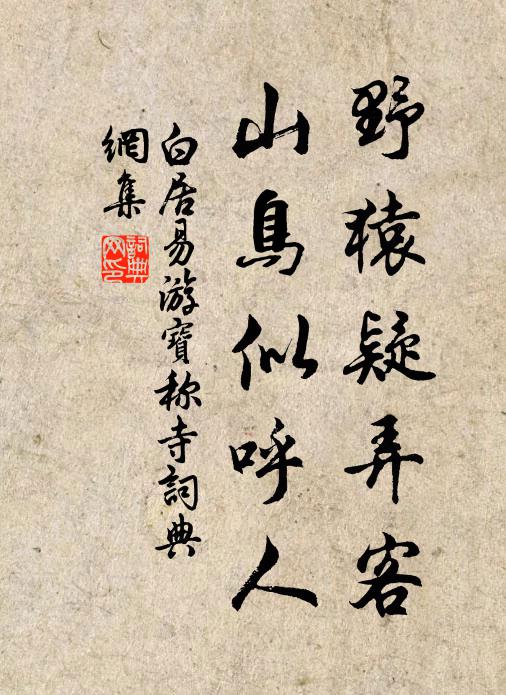 野猿疑弄客
山鳥似呼人
白居易游寶称寺詞典
網集
詞典
网印